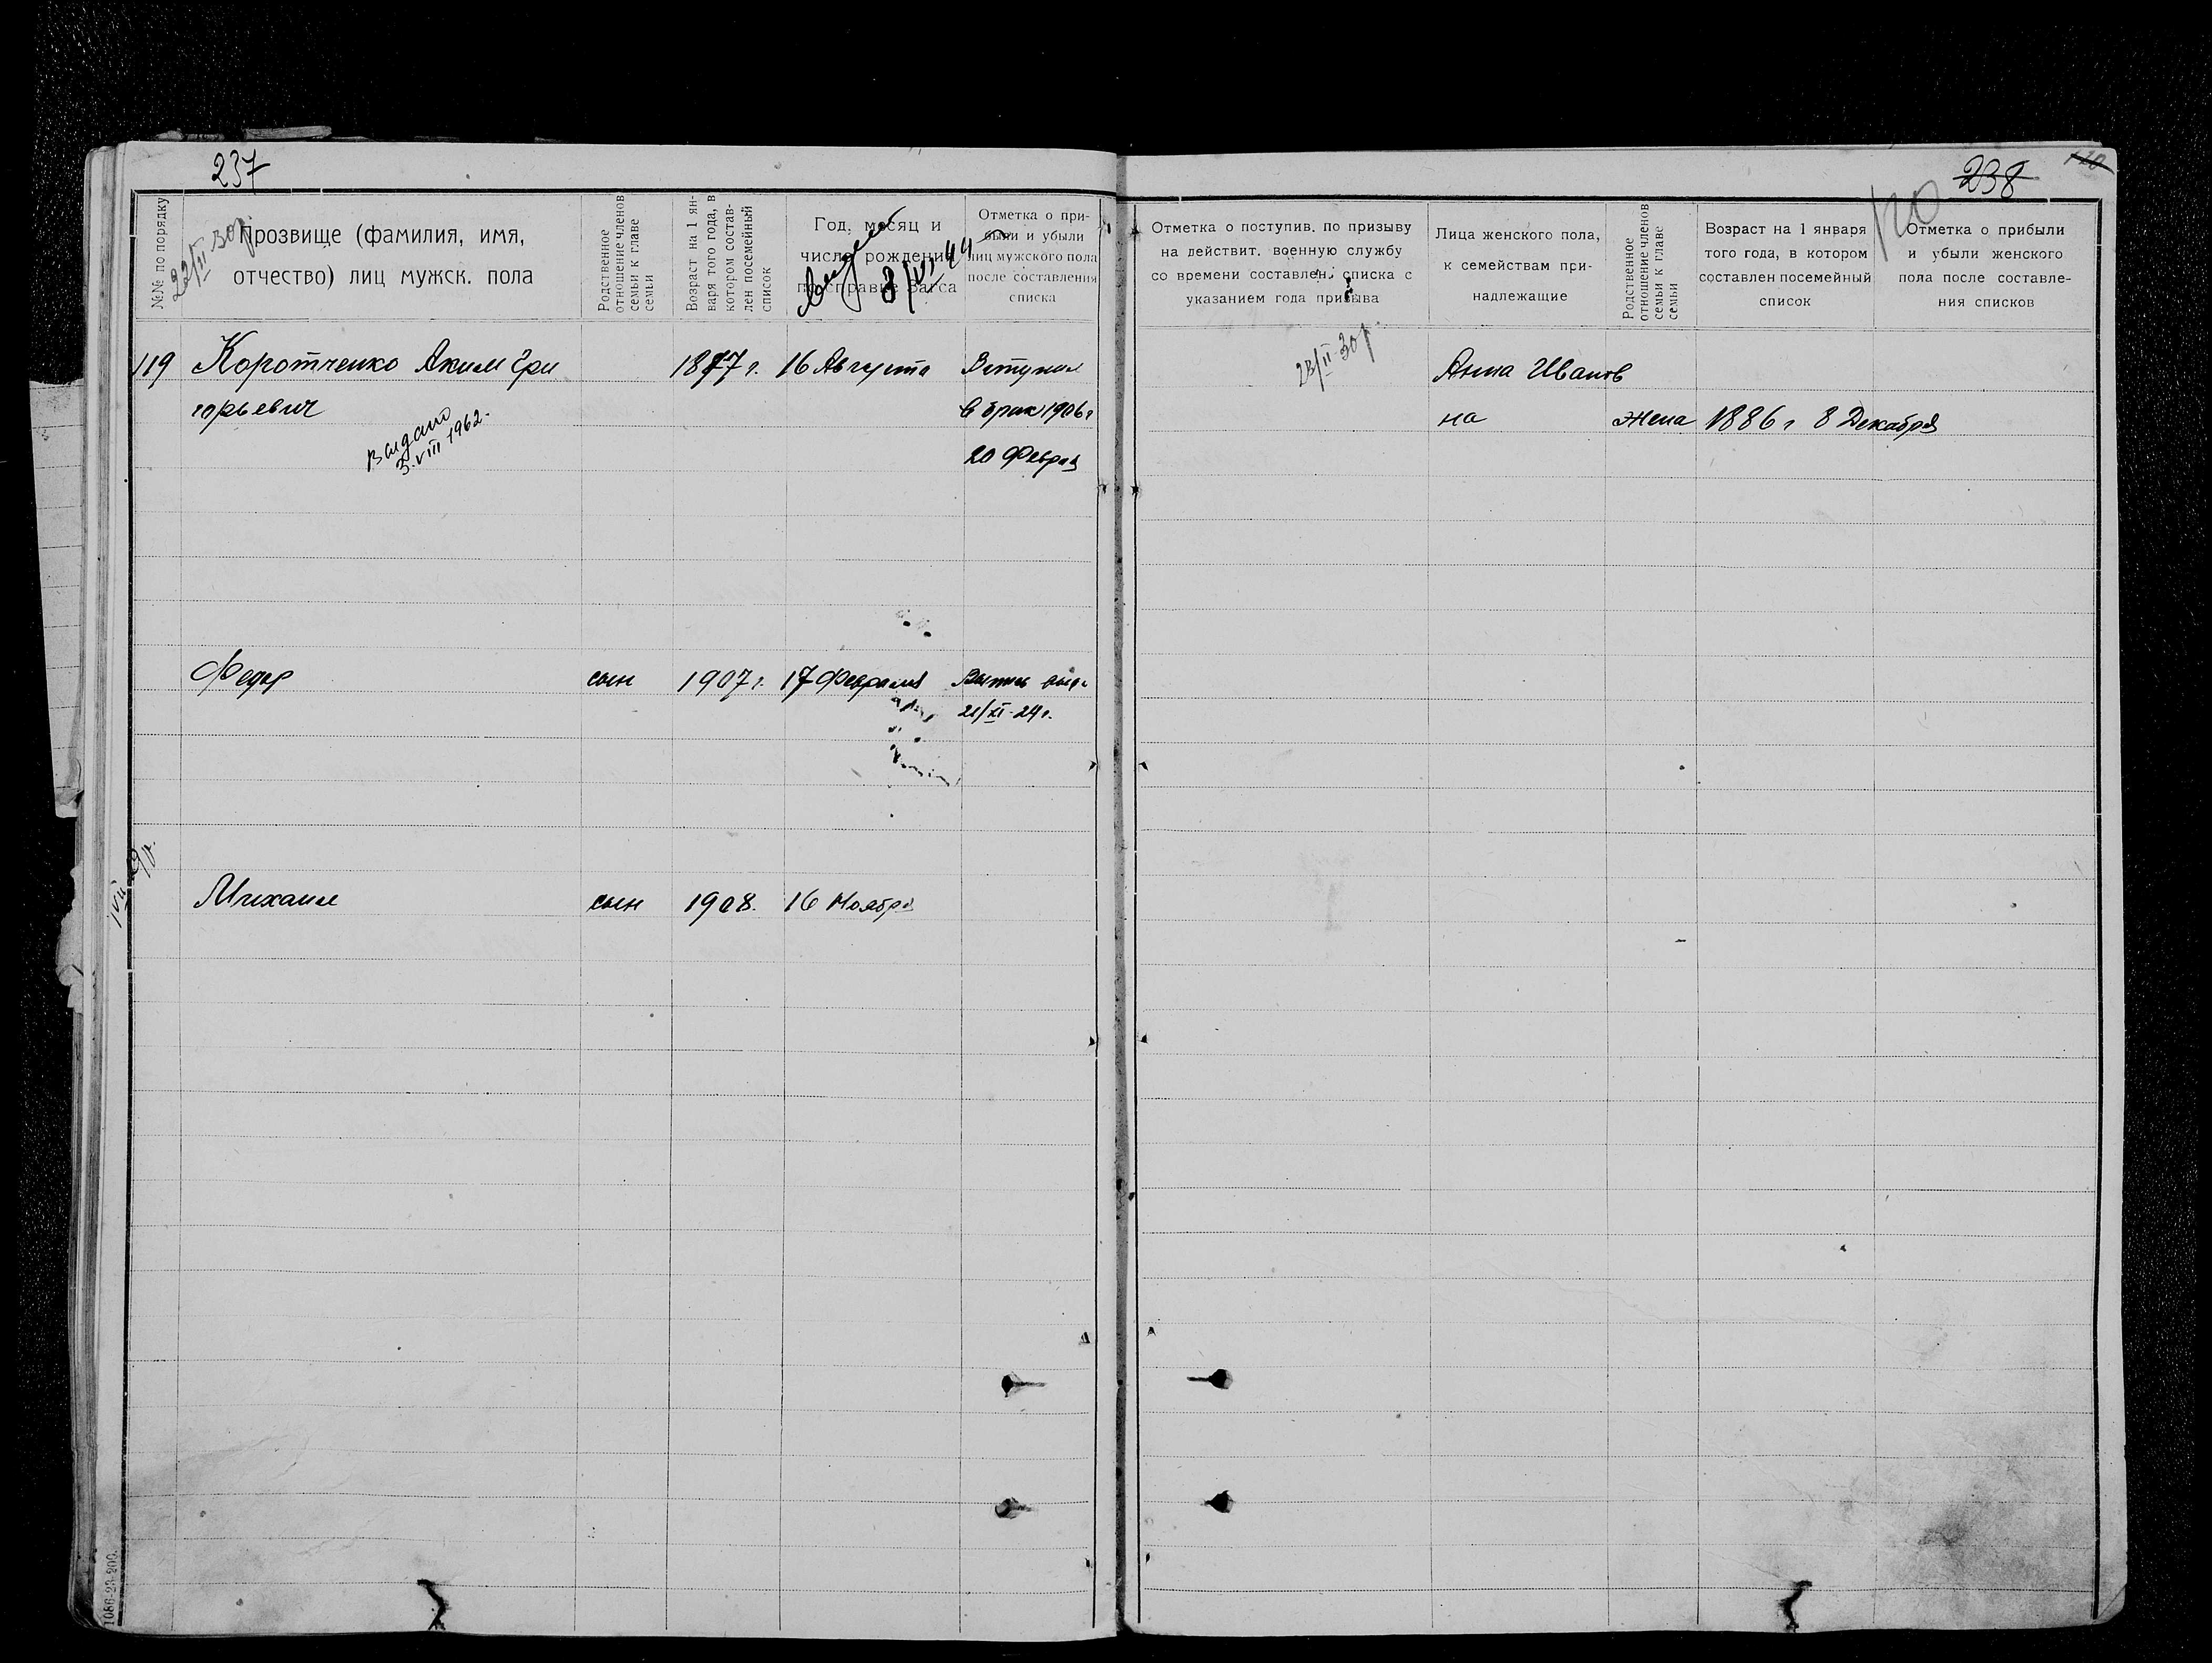 237
№№ по порядку
22/II-30г.
Прозвище (фамилия, имя,
отчество) лиц мужск. пола
Родственное
отношение членов
семьи к главе
семьи
Возраст на 1 ян-
варя того года, в
котором состав-
лен посемейный
список
Год, месяц и
число рождения
по справке Загса
8/VI-44
Отметка о при-
были и убыли
лиц мужского пола
после составления
списка
119 Коротченко Аким Гри 1877 г. 16 Августа Вступил
горьевич в брак 1906 г
20 Феврал
Выдано
3.VIII 1962.
Федор сын 1907 г. 17 Февраля Выпись выд.
21/XI-24 г.
Михаил сын 1908. 16 Ноября
1086-23-200.
238
120
120
Отметка о поступив. по призыву
на действит. военную службу
со времени составлен. списка с
указанием года призыва
Лица женского пола,
к семействам при-
надлежащие
Родственное
отношение членов
семьи к главе
семьи
Возраст на 1 января
того года, в котором
составлен посемейный
список
Отметка о прибыли
и убыли женского
пола после составле-
ния списков
Анна Иванов
на жена 1886 г 8 Декабря